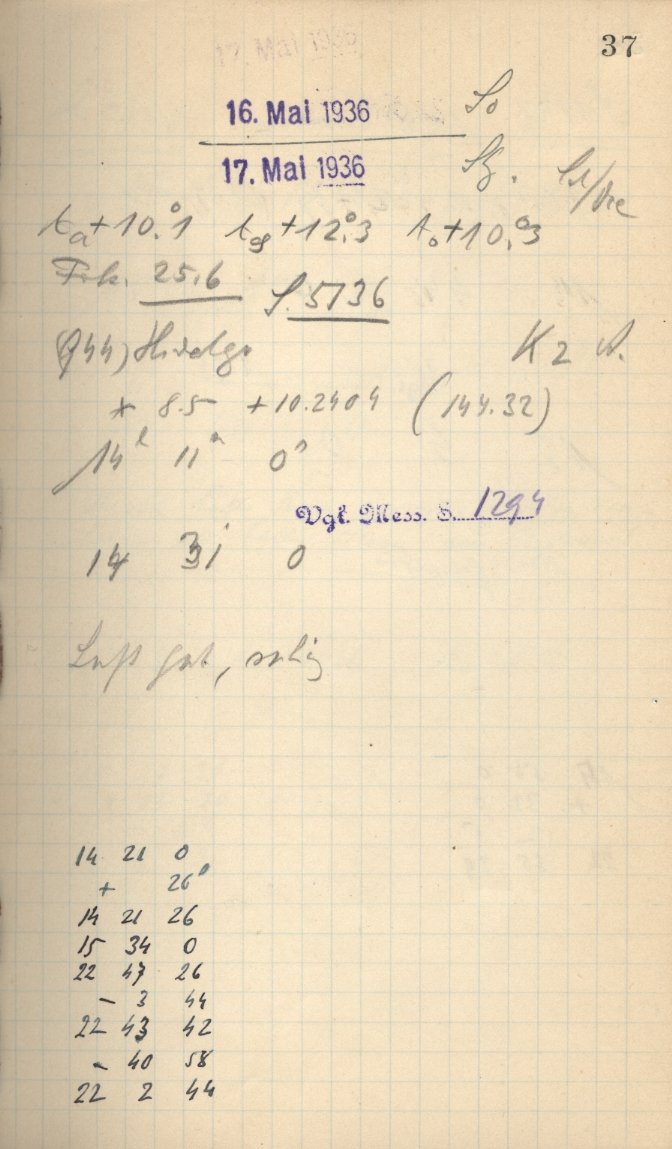 37
16. Mai 1936 So
17. Mai 1936
+10.°1 +12.°3 +10.°3
Fok. 25.6 S. 5136
(944) Hidalgo K2
* 8.5 +10.2404 (144.32)
14 11 0
Vgl. Mess. S. 1294
14 31 0
Luft gut, ruhig
14 21 0
+ 26
14 21 26
15 34 0
22 47 26
- 3 44
22 43 42
- 40 58
22 2 44